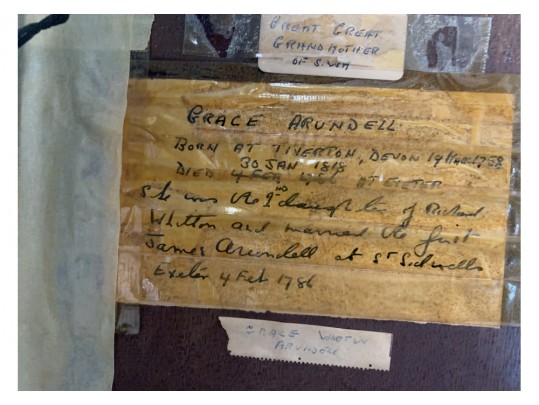 GREAT GREAT
GRANDMOTHER
OF S.
GRACE ARUNDELL.
BORN AT TIVERTON, DEVON 19 1758
30 JAN 1818
DIED 4 FEB 1786 AT EXETER
She was the 2nd daughter of Richard
Whitton and married the first
James Arundell at St Sidwells
Exeter 4 Feb 1786
GRACE
ARUNDELL